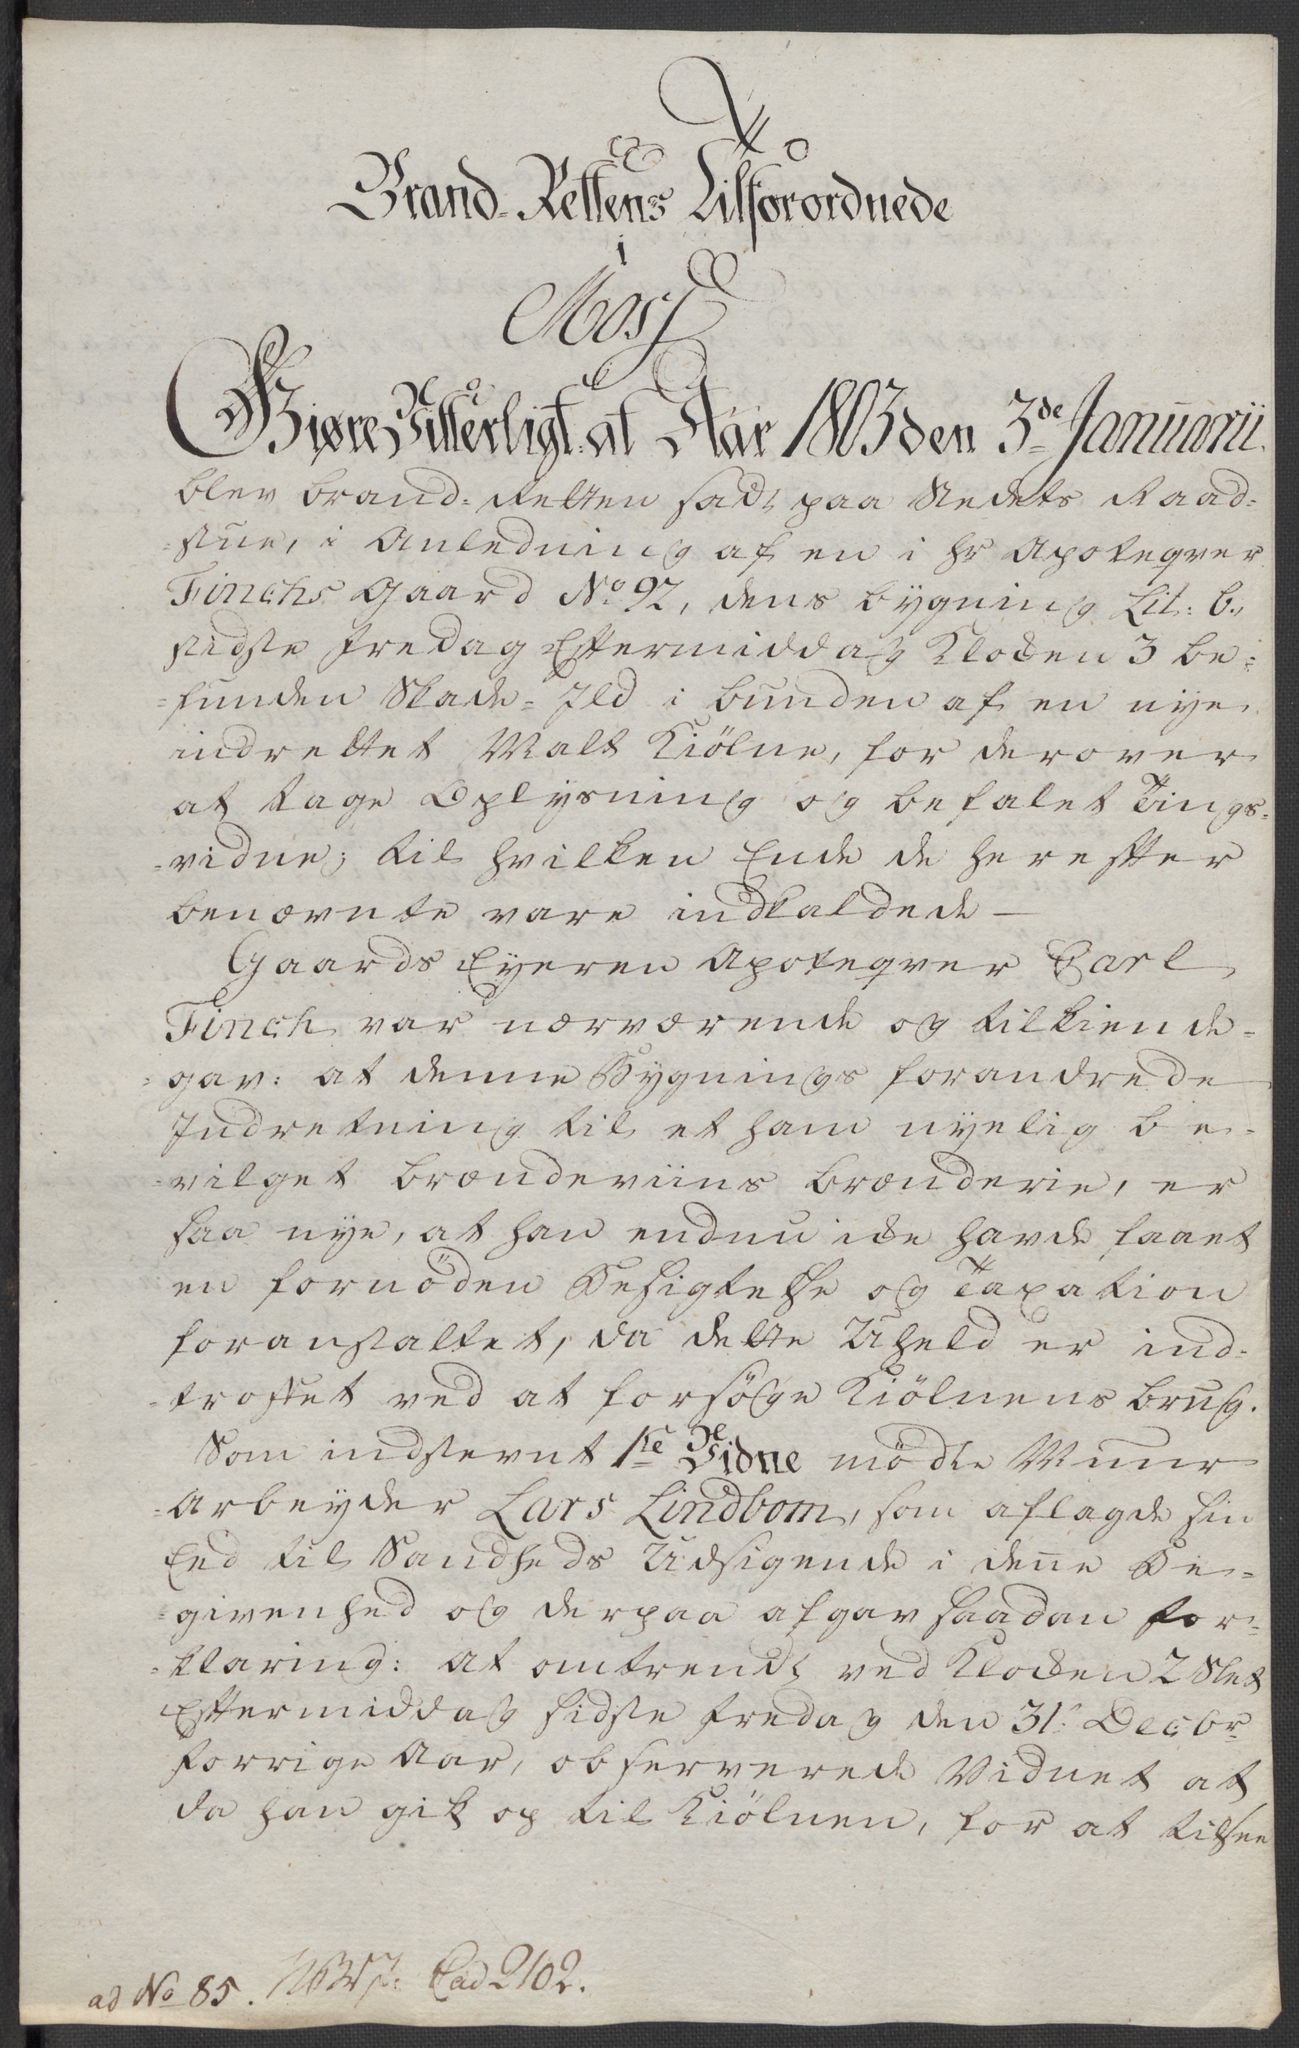 Brand-Rettens Tilforordnede
i
Moss
Giøre Vitterligt at Aar 1803 den 3de Januarii
blev brand-Retten sadt paa Stedets Raad-
-stue, i Anledning af en i hr Apoteqver
Finchs Gaard No 92, dens bygning Lit: b.,
sidste fredag Eftermiddag Klokken 3 be-
-funden Skade-Ild i bunden af en nye
indrettet Malt Kiölne, for derover
at tage Oplysning og befalet Tings-
-vidne; til hvilken Ende de herefter
benævnte vare indkaldede —
Gaards Eyeren Apoteqver Carl
Finch var nærværende og tilkiende-
-gav: at denne Bygnings forandrede
Indretning til et ham nyelig be-
-vilget brændeviins brænderie, er
saa nye, at han endnu ikke havde faaet
en fornöden Besigtelse og Taxation
foranstaltet, da dette Uheld er ind-
-troffet ved at forsöge Kiölnens brug.
Som indstevnt 1te Vidne mödte Muur
Arbeyder Lars Lindbom, som aflagde sin
Eed til Sandheds Udsigende i denne Be-
-givenhed og derpaa afgav saadan for-
-klaring: at omtrendt ved Klokken 2 Slet
Eftermiddag sidste fredag den 31te Decbr
forrige Aar, observerede Vidnet at,
da han gik op til Kiölnen, for at tilsee
ad No 85. Cad 2102.